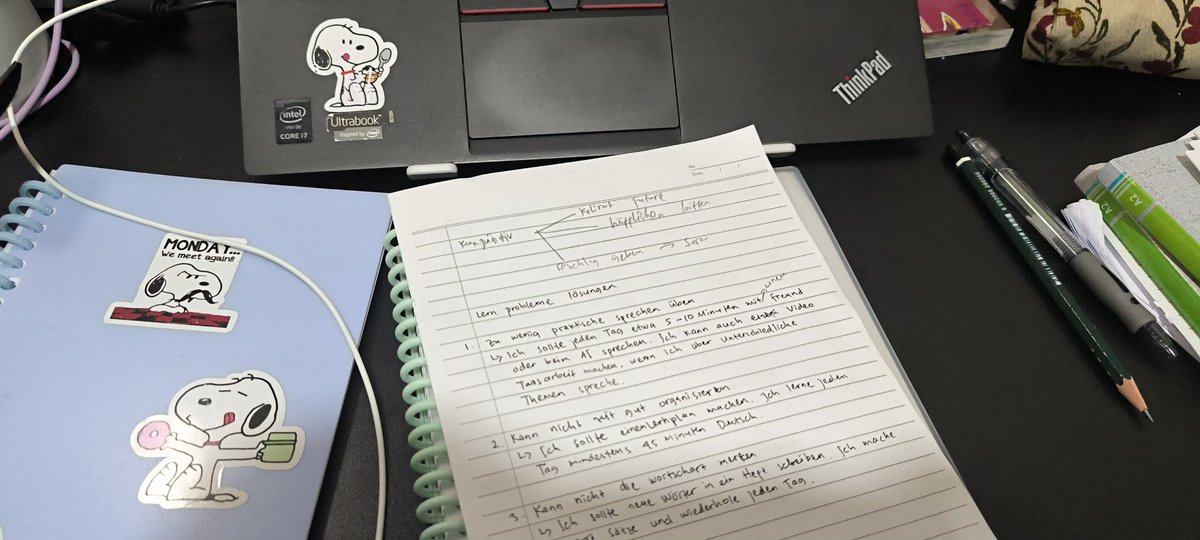 intel
inside
CORE i7
Ultrabook™
Inspired by intel
ThinkPad
MONDAY...
We meet again!!
No.
Date / /
future
bitten
geben
Lern probleme lösungen
1. Zu wenig praktische sprechen üben
↳ Ich sollte jeden Tag etwa 5-10 Minuten mit freund
oder beim AI sprechen. Ich kann auch Video
machen, wenn ich über unterschiedliche
Themen spreche.
2. Kann nicht zeit gut organisierten
↳ Ich sollte einenlernplan machen. Ich lerne jeden
Tag mindestens 45 Minuten Deutsch.
3. Kann nicht die wortschart merken
↳ Ich sollte neue Wörter in ein Heft schreiben. Ich mache
sätze und wiederhole jeden Tag.
A2
A2